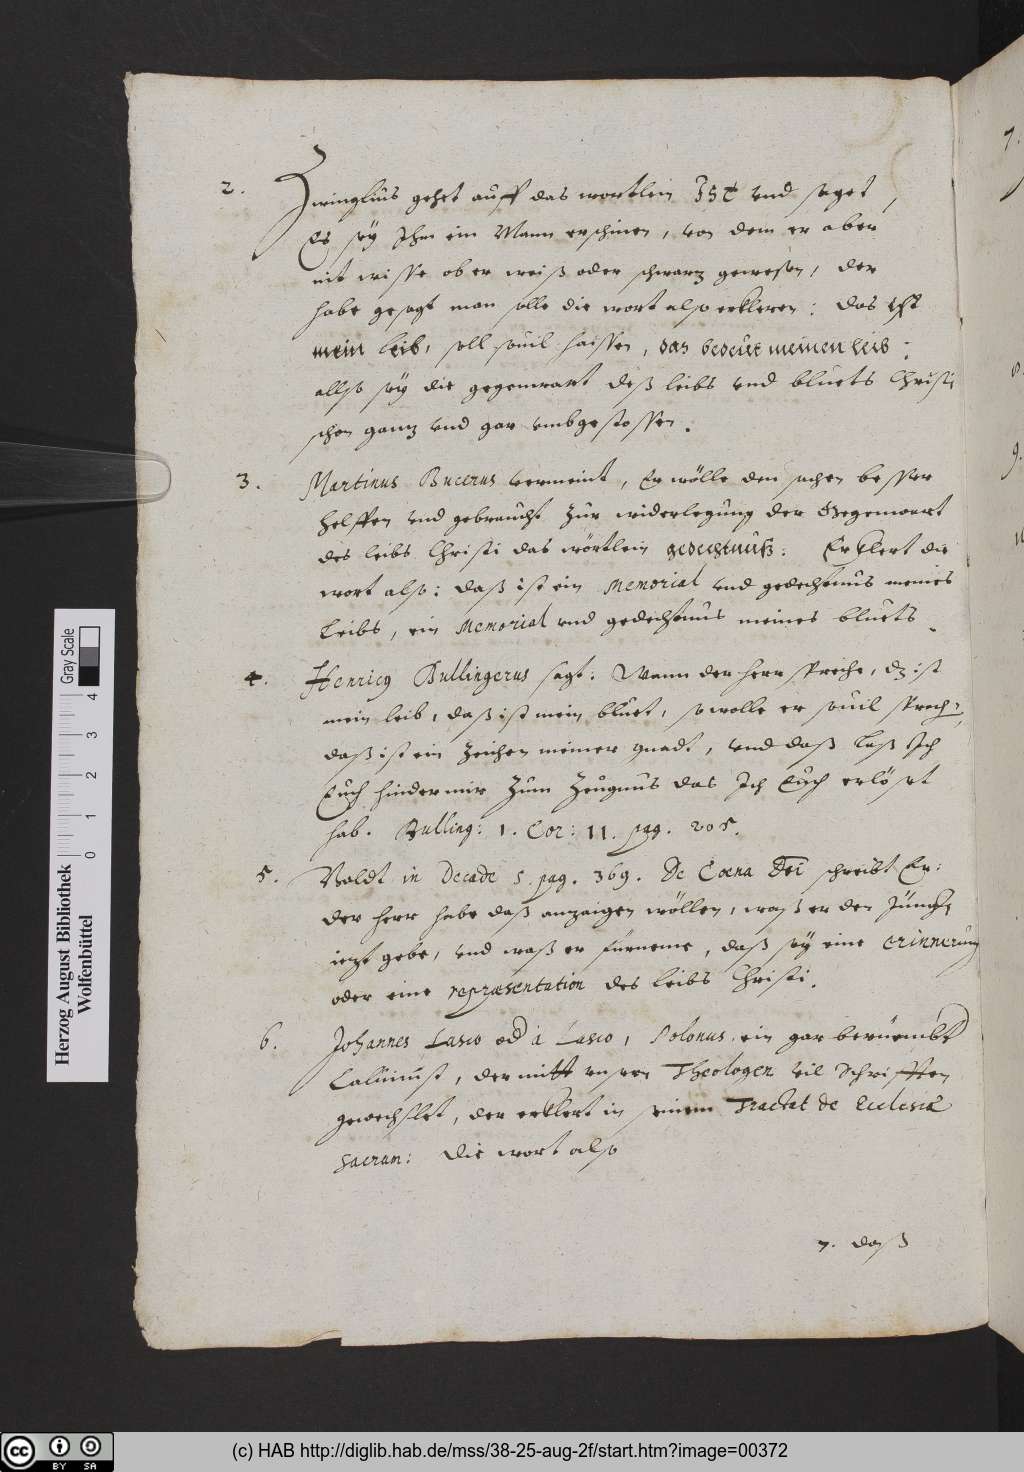 2. Zwinglius gehet auff das wortlein Ist vnd saget,
Es seÿ Ihm ein Mann erschinen, von dem er aber
nit wisse ob er weiß oder schwarz gewesen, der
habe gesagt man solle die wort also erkleren: das ist
mein leib, soll souil haissen, das bedeüt meinen leib:
allso seÿ die gegenwart deß leibs vnd bluets Christi
schon ganz vnd gar vmbgestossen.
3. Martinus Bucerus vermeint, Er wölle den sachen besser
helffen vnd gebraucht zur widerlegung der Gegenwart
des leibs Christi das wörtlein gedechtnuß: Erklert die
wort also: daß ist ein Memorial vnd gedechtnus meines
leibs, ein Memorial vnd gedechtnus meines bluets.
4. Henricq Bullingerus sagt: Wann der herr spreche, dz ist
mein leib, daß ist mein bluet, so wolle er souil sprech:
daß ist ein Zeichen meiner gnadt, vnd daß laß Ich
Euch hinder mir zum Zeügnus das Ich Euch erlöset
hab. Bulling: 1. Cor: 11. pag. 205.
5. Baldt in Decade 5. pag. 369. De Cœna Dei schreibt Er:
der herr habe daß anzaigen wöllen, waß er den Jüngern
iezt gebe, vnd waß er fürneme, daß seÿ eine erinnerung
oder eine repræsentation des leibs Christi.
6. Johannes Lasco od à Lasco, Polonus, ein gar berüembt
Caluinist, der mitt vnsern Theologen vil Schrifften
gewechslet, der erklert in seinem Tractat de Ecclesiæ
sacram: die wort also
7. daß
Herzog August Bibliothek
Wolfenbüttel
0 1 2 3 4
Gray Scale
cc BY SA
(c) HAB http://diglib.hab.de/mss/38-25-aug-2f/start.htm?image=00372
7.
9.